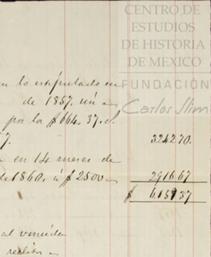 CENTRO DE
ESTUDIOS
DE HISTORIA
DE MEXICO
FUNDACIÓN
Carlos Slim
lo estipulado en
de 1857. un a
por la $664. 37. c.
7. 3242.70.
en 14 meses de
de 1860, á $2500 2916.67
$ 6159.37
al vencido